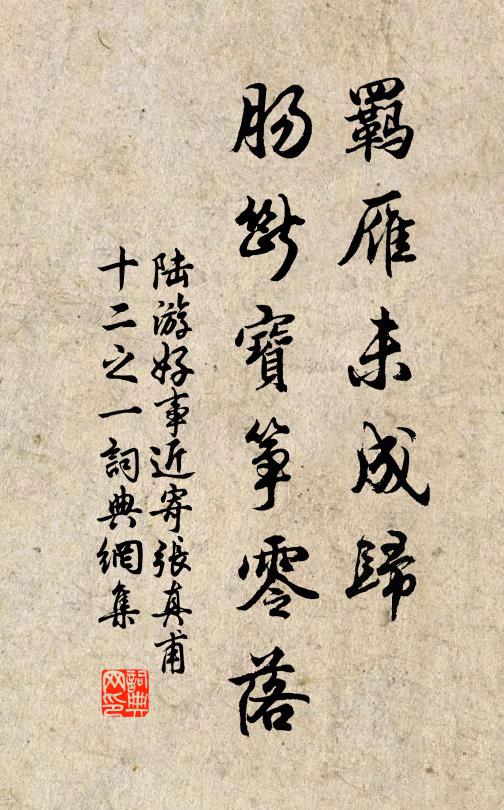 羈雁未成歸
腸斷寶箏零落
陸游好事近寄張真甫
十二之一詞典網集
詞典
网印